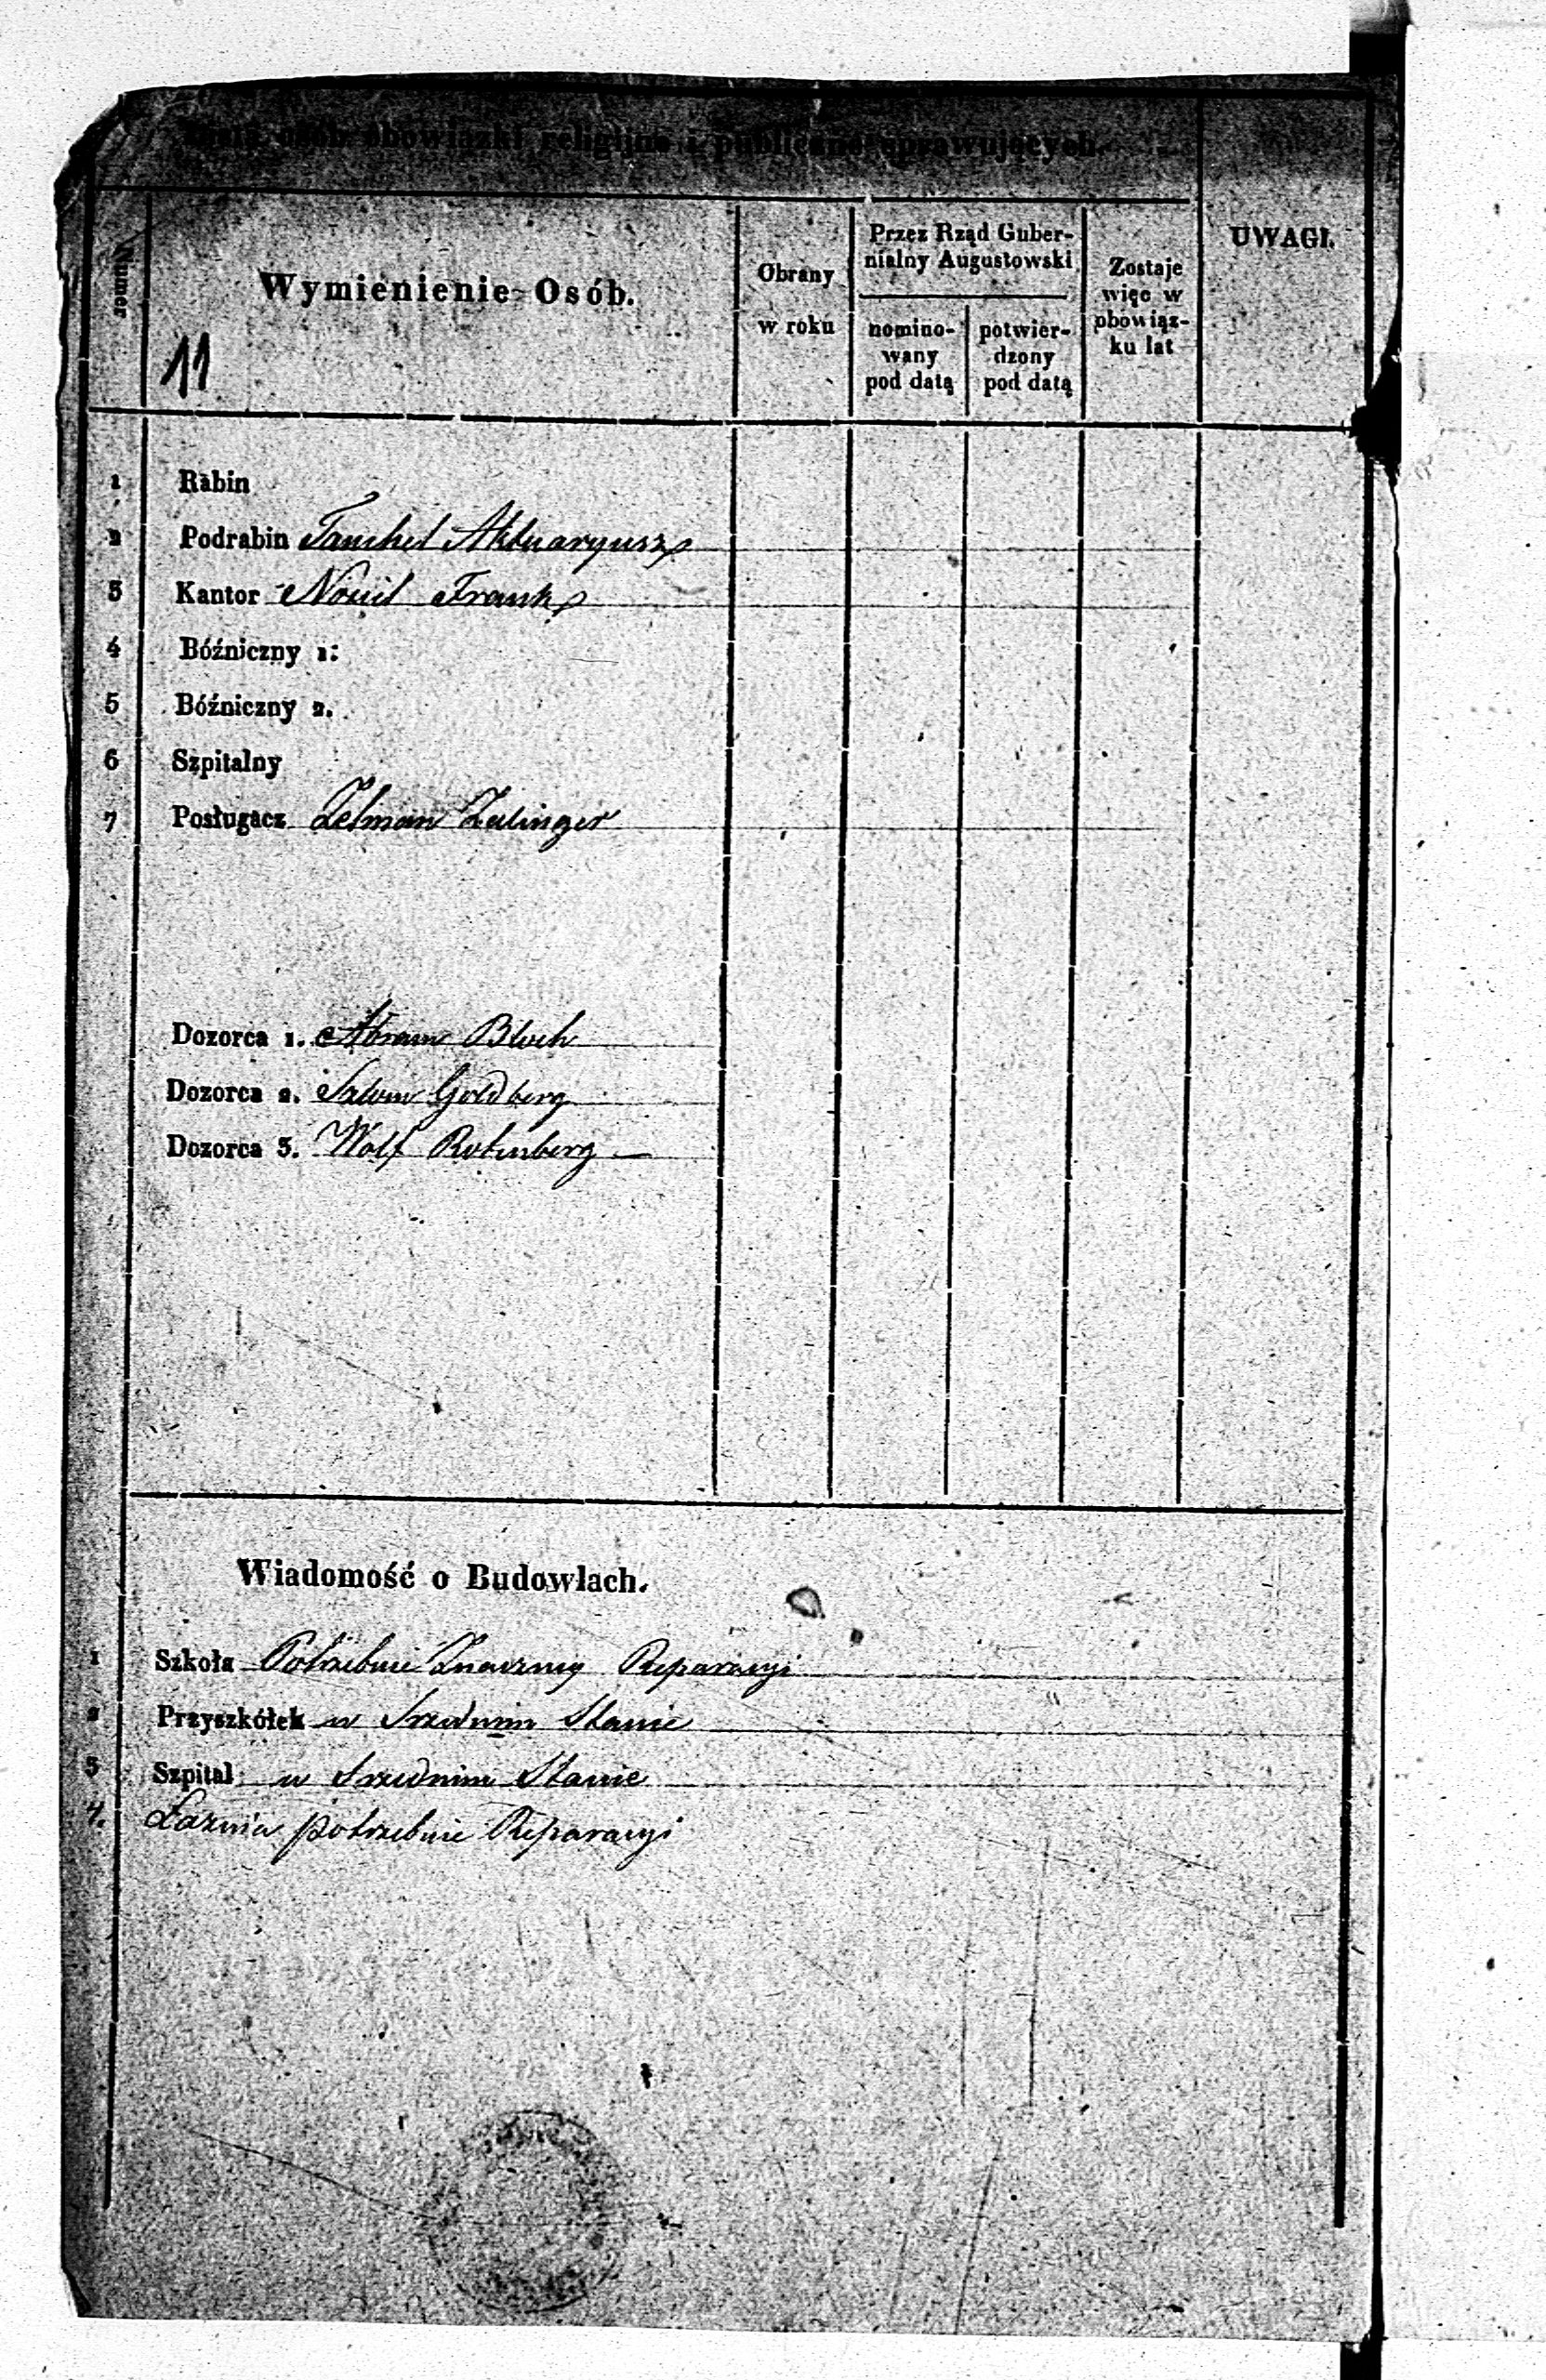 Lista osób obowiązki religijne i publiczne sprawujących.
Numer
Wymienienie Osób.
11
Obrany
w roku
Przez Rząd Guber-
nialny Augustowski
nomino-
wany
pod datą
potwier-
dzony
pod datą
Zostaje
więc w
obowiąz-
ku lat
UWAGI.
1 Rabin
2 Podrabin Tanchel Aktuaryusz
3 Kantor Frank
4 Bóźniczny 1:
5 Bóźniczny 2.
6 Szpitalny
7 Posługacz Zelman Zelinger
Dozorca 1. Abram Bloch
Dozorca 2. Goldberg
Dozorca 3. Wolf Rotenberg
Wiadomość o Budowlach.
1 Szkoła Potrzebuie Znaczney Reparacyi
2 Przyszkółek w Srzednim Stanie
3 Szpital w Srzednim Stanie
4. Łaznia potrzebuie Reparacyi